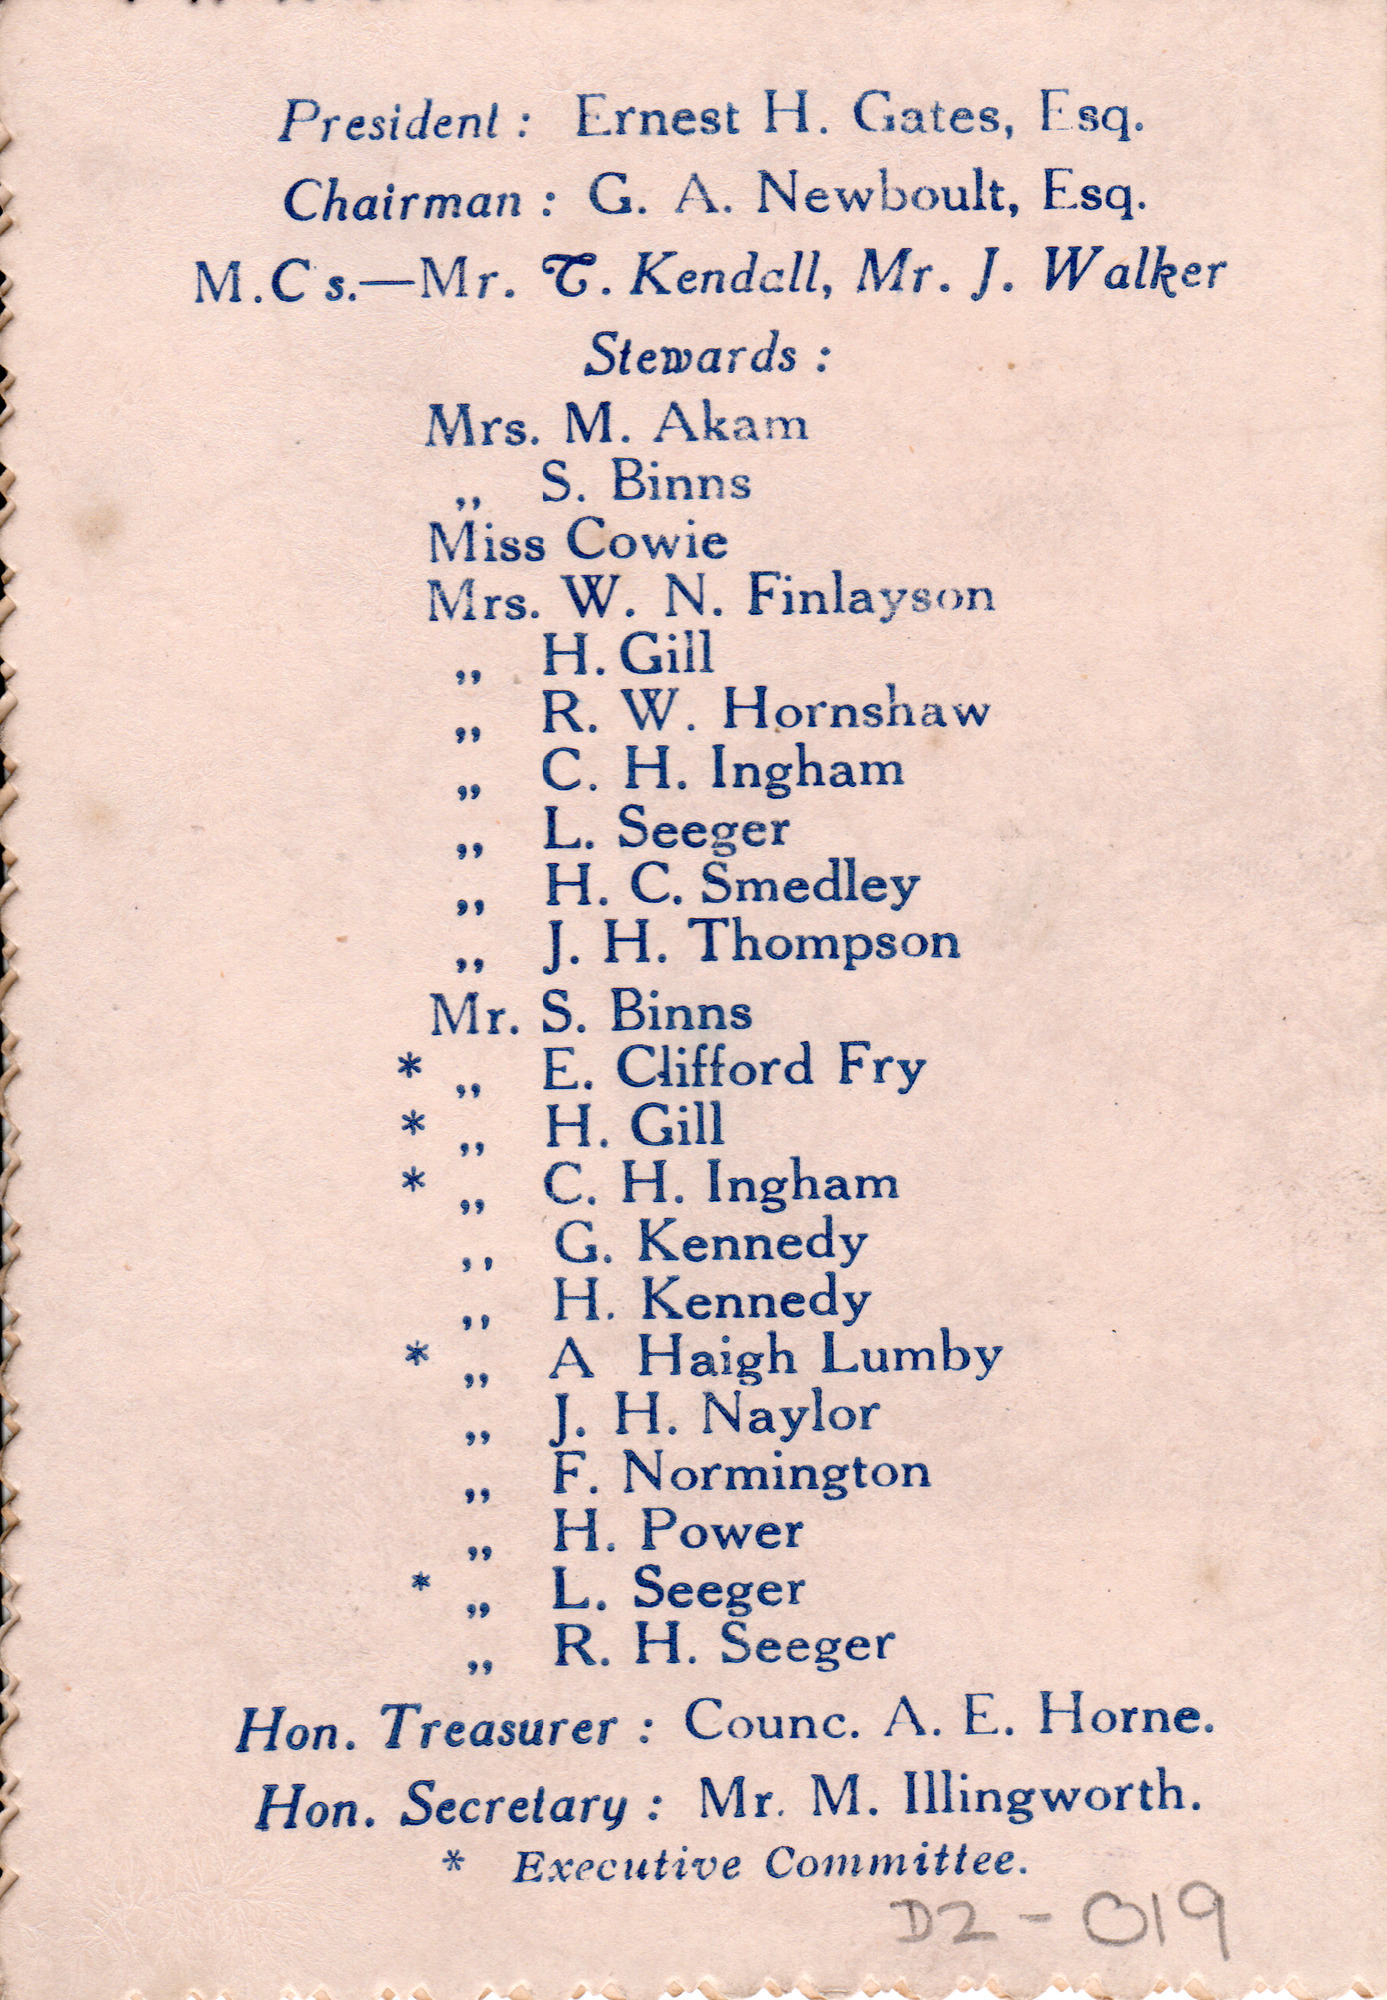 President : Ernest H. Gates, Esq.
Chairman : G. A. Newboult, Esq.
M.C s.—Mr. T. Kendall, Mr. J. Walker
Stewards :
Mrs. M. Akam
„ S. Binns
Miss Cowie
Mrs. W. N. Finlayson
„ H. Gill
„ R. W. Hornshaw
„ C. H. Ingham
„ L. Seeger
„ H. C. Smedley
„ J. H. Thompson
Mr. S. Binns
* „ E. Clifford Fry
* „ H. Gill
* „ C. H. Ingham
„ G. Kennedy
„ H. Kennedy
* „ A Haigh Lumby
„ J. H. Naylor
„ F. Normington
„ H. Power
* „ L. Seeger
„ R. H. Seeger
Hon. Treasurer : Counc. A. E. Horne.
Hon. Secretary : Mr. M. Illingworth.
* Executive Committee.
D2 - 019